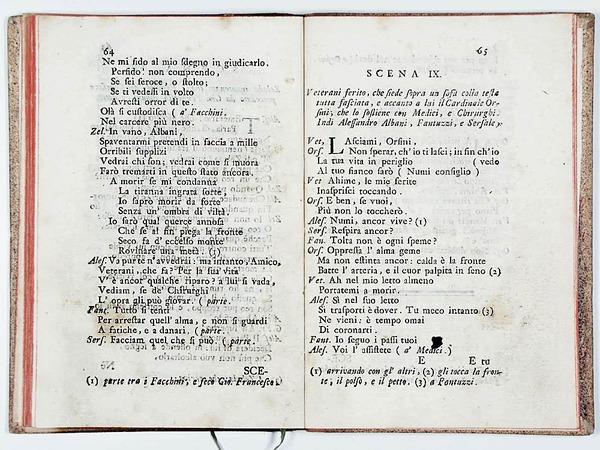 64
Ne mi fido al mio ſdegno in giudicarlo.
Perfido! non comprendo,
Se ſei feroce, o ſtolto;
Se ti vedeſſi in volto
Avreſti orror di te.
Olà ſi cuſtodiſca ( a' Facchini.
Nel carcere più nero.
Zel. In vano, Albani,
Spaventarmi pretendi in faccia a mille
Orribili ſupplizi
Vedrai chi ſon; vedrai come ſi muora
Farò tremarti in queſto ſtato ancora.
A morir ſe mi condanna
La tiranna ingrata ſorte;
Io ſaprò morir da forte
Senza un' ombra di viltà
Io ſarò qual querce annoſa
Che ſe al fin piega la fronte
Seco fa d' eccelſo monte
Rovinare una metà. (1)
Aleſ. Va pur te n'avvedrai: ma intanto, Amico,
Veterani, che fa? Per la ſua vita
V'è ancor qualche riparo? a lui ſi vada,
Vediam, ſe de' Chirurghi
L' opra gli può giovar. ( parte.
Fant. Tutto ſi tenti
Per arreſtar quell' alma, e non ſi guardi
A fatiche, e a danari. ( parte.
Serſ. Facciam quel che ſi può. ( parte.
SCE-
(1) parte tra i Facchini, e ſeco Gio. Franceſco.
65
SCENA IX.
Veterani ferito, che ſiede ſopra un ſofà colla teſta
tutta faſciata, e accanto a lui il Cardinale Or-
ſini, che lo ſoſtiene con Medici, e Chirurghi.
Indi Aleſſandro Albani, Fantuzzi, e Serſale.
Vet. LAſciami, Orſini.
Orſ. Non ſperar, ch'io ti laſci; in fin ch'io
La tua vita in periglio ( vedo
Al tuo fianco ſarò ( Numi conſiglio )
Vet Ahime, le mie ferite
Inaſpriſci toccando.
Orſ. E ben, ſe vuoi,
Più non lo toccherò.
Aleſ. Numi, ancor vive? (1)
Serſ. Reſpira ancor?
Fan. Tolta non è ogni ſpeme?
Orſ. Oppreſſa l' alma geme
Ma non eſtinta ancor: calda è la fronte
Batte l' arteria, e il cuor palpita in ſeno (2)
Vet. Ah nel mio letto almeno
Portatemi a morir.
Aleſ. Sì nel ſuo letto
Si traſporti è dover. Tu meco intanto (3)
Ne vieni: è tempo omai
Di coronarti.
Fant. Io ſeguo i paſſi tuoi
Aleſ. Voi l' aſſiſtete ( a' Medici.)
E E tu
(1) arrivando con gl' altri, (2) gli tocca la fron-
te, il polſo, e il petto. (3) a Fantuzzi.